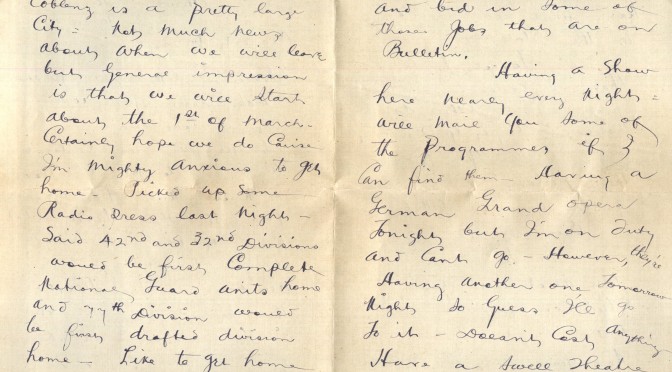 Coblenz is a pretty large
City = Not much news
about when we will leave
but General impression
is that we will start
about the 1st of March -
Certainly hope we do Cause
I'm mighty Anxious to get
home - Picked up some
Radio Press last Night -
Said 42nd and 32nd Divisions
would be first Complete
National Guard units home
and 77th Division would
be first drafted division
home - Like to get home
and bid in some of
those Jobs that are on
Bulletin.
Having a Show
here nearly every Night =
will mail You some of
the Programmes if I
Can find them - Having a
German Grand opera
Tonight but I'm on Duty
and Can't go - However, they're
Having another one Tomorrow
Night so Guess I'll go
To it - Doesn't Cost anything
Have a Swell Theatre